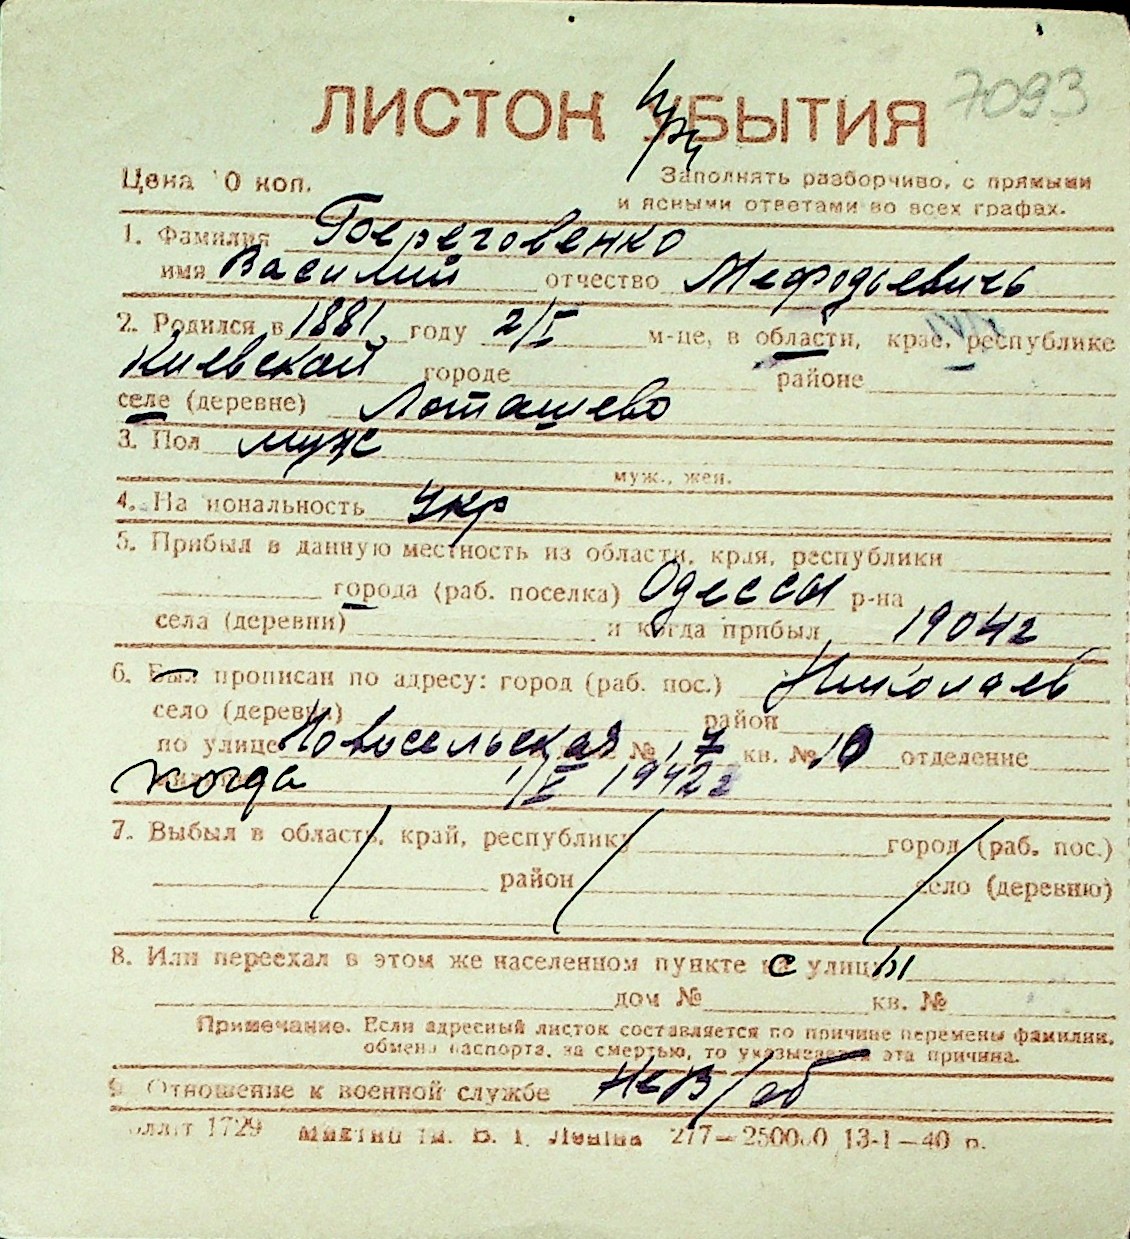 7093
ЛИСТОК УБЫТИЯ
При
Цена 10 коп.
Заполнять разборчиво, с прямыми
и ясными ответами во всех графах.
1. Фамилия Гоереговенко
имя Василий отчество Мефодьевичь
2. Родился в 1881 году 2/I м-це, в области, крае, республике
Киевской городе районе
селе (деревне) Лоташево
3. Пол муж
муж., жен.
4. Национальность Укр
5. Прибыл в данную местность из области, края, республики
города (раб. поселка) Одессы р-на
села (деревни) и когда прибыл 1904 г
6. Был прописан по адресу: город (раб. пос.) Николаев
село (деревня) район
по улице Новосельская № 17 кв. № 10 отделение
когда 1/V 1942 г
7. Выбыл в область, край, республику город (раб. пос.)
район село (деревню)
8. Или переехал в этом же населенном пункте с улицы
дом № кв. №
Примечание. Если адресный листок составляется по причине перемены фамилии,
обмена паспорта, за смертью, то указывается эта причина.
9. Отношение к военной службе НеВ/об
1729 им. В. І. Леніна 277—250000 13-I—40 р.